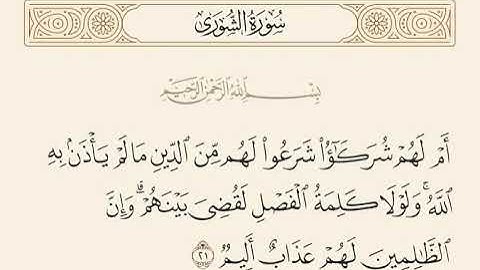 سُورَةُ الشُّورَىٰ
بِسْمِ اللَّهِ الرَّحْمَٰنِ الرَّحِيمِ
أَمْ لَهُمْ شُرَكَٰٓؤُا۟ شَرَعُوا۟ لَهُم مِّنَ ٱلدِّينِ مَا لَمْ يَأْذَنۢ بِهِ
ٱللَّهُۚ وَلَوْلَا كَلِمَةُ ٱلْفَصْلِ لَقُضِىَ بَيْنَهُمْۗ وَإِنَّ
ٱلظَّٰلِمِينَ لَهُمْ عَذَابٌ أَلِيمٌ ٢١